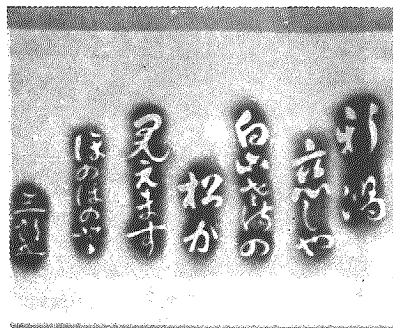 新潟
恋しや
白山さまの
松か
見えます
ほのほのと